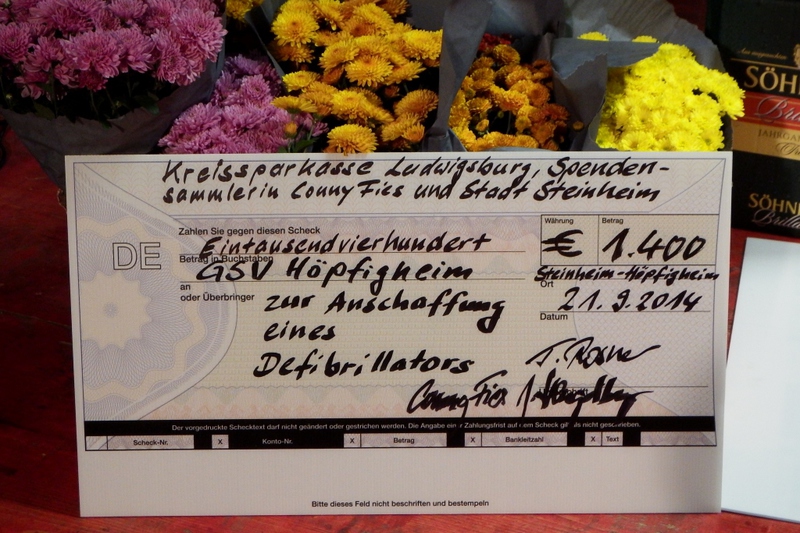 Kreissparkasse Ludwigsburg, Spenden-
sammlerin Conny Fies und Stadt Steinheim
DE
Zahlen Sie gegen diesen Scheck
Eintausendvierhundert
Betrag in Buchstaben
Währung
€
Betrag
1.400
GSV Höpfigheim
an
oder Überbringer
Steinheim-Höpfigheim
Ort
21.9.2014
Datum
zur Anschaffung
eines
Defibrillators
T. Rosner
Conny Fies
Der vorgedruckte Schecktext darf nicht geändert oder gestrichen werden. Die Angabe einer Zahlungsfrist auf dem Scheck gilt als nicht geschrieben.
Scheck-Nr.
X
Konto-Nr.
X
Betrag
X
Bankleitzahl
X
Text
Bitte dieses Feld nicht beschriften und bestempeln
SÖHN
JAHRGA
SÖHNL
Brilla